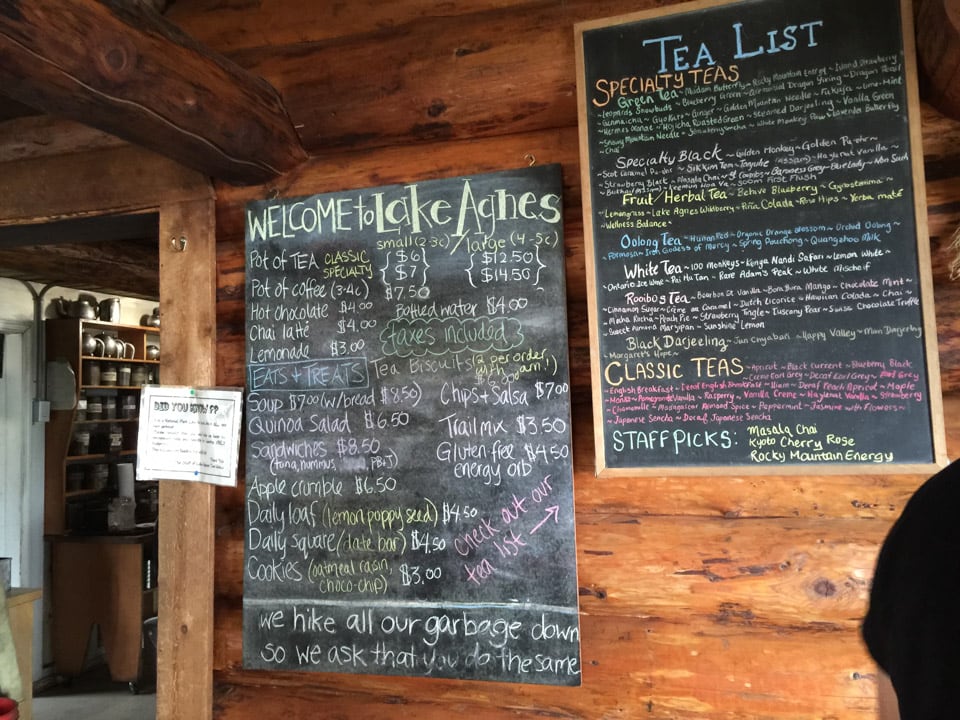 WELCOME to Lake Agnes
small (2-3c) / large (4-5c)
Pot of TEA CLASSIC {$6} {$12.50}
SPECIALTY {$7} {$14.50}
Pot of coffee (3-4c) $7.50
Hot chocolate $4.00 Bottled water $4.00
Chai latte $4.00 taxes included
Lemonade $3.00
EATS + TREATS Tea Biscuits (2 per order, with jam!)
Soup $7.00 (w/bread $8.50) Chips + Salsa $7.00
Quinoa Salad $6.50 Trail mix $3.50
Sandwiches $8.50 Gluten free $4.50
(tuna, hummus, PB+J) energy orb
Apple crumble $6.50
Daily loaf (lemon poppy seed) $4.50
Daily square (date bar) $4.50
Cookies (oatmeal raisin, $3.00
choco-chip)
check out our
tea list →
we hike all our garbage down
so we ask that you do the same
DID YOU KNOW??
TEA LIST
SPECIALTY TEAS
Green Tea ~ Madam Butterfly ~ Rocky Mountain Energy ~ Island Strawberry
~ Leopards Snowbuds ~ Blueberry Green ~ Ceremonial Dragon Yiking ~ Dragon Pearl
~ Genmaicha ~ Gyokuro ~ Ginger ~ Golden Mountain Needle ~ Fukuya ~ Lime-Mint
~ Hermes Orange ~ Hojicha Roasted Green ~ Steamed Darjeeling ~ Vanilla Green
~ Snowy Mountain Needle ~ Strawberry Sencha ~ White Monkey Paw ~ Lavender Butterfly
~ Chai
Specialty Black ~ Golden Monkey ~ Golden Pu-erh ~
~ Scot Caramel Pu-erh ~ Sikkim Tea ~ (Assam) ~ Hazelnut Vanilla ~
Strawberry Black ~ Masala Chai ~ St Coombs ~ Baroness Grey ~ Blue Lady
(Assam) ~ Keemun Hao Ya ~ Soom First Flush
Fruit/Herbal Tea ~ Behive Blueberry ~ Gynostemma ~
~ Lemongrass ~ Lake Agnes Wildberry ~ Piña Colada ~ Rose Hips ~ Yerba maté
~ Wellness Balance ~
Oolong Tea ~ Hunan Red ~ Organic Orange Blossom ~ Orchid Oolong ~
Formosa ~ Iron Goddess of Mercy ~ Spring Pouchong ~ Quangzhou Milk
White Tea ~ 100 Monkeys ~ Kenya Nandi Safari ~ Lemon White ~
~ Ontario Ice Wine ~ Pai Mu Tan ~ Rare Adam's Peak ~ White Mischeif
Rooibos Tea ~ Bourbon St Vanilla ~ Bora Bora Mango ~ Chocolate Mint ~
~ Cinnamon Sugar ~ Crème au Caramel ~ Dutch Licorice ~ Hawaiian Colada ~ Chai ~
Mocha Rocha ~ Peach Pie ~ Strawberry Tangle ~ Tuscany Pear ~ Swiss Chocolate Truffle
~ Sweet Amara Marzipan ~ Sunshine Lemon
Black Darjeeling ~ Jun Chiyabari ~ Happy Valley ~ Mim Darjeeling
~ Margaret's Hope ~
CLASSIC TEAS ~ Apricot ~ Black Currant ~ Blueberry Black
~ Creme Earl Grey ~ Decaf Earl Grey ~ Earl Grey
~ English Breakfast ~ Decaf English Breakfast ~ Decaf Peach Apricot ~ Maple
~ Pomegranate Vanilla ~ Raspberry ~ Vanilla Creme ~ Hazelnut Vanilla ~ Strawberry
~ Chamomile ~ Madagascar Almond Spice ~ Peppermint ~ Jasmine with Flowers ~
~ Japanese Sencha ~ Decaf Japanese Sencha
STAFF PICKS: Masala Chai
Kyoto Cherry Rose
Rocky Mountain Energy